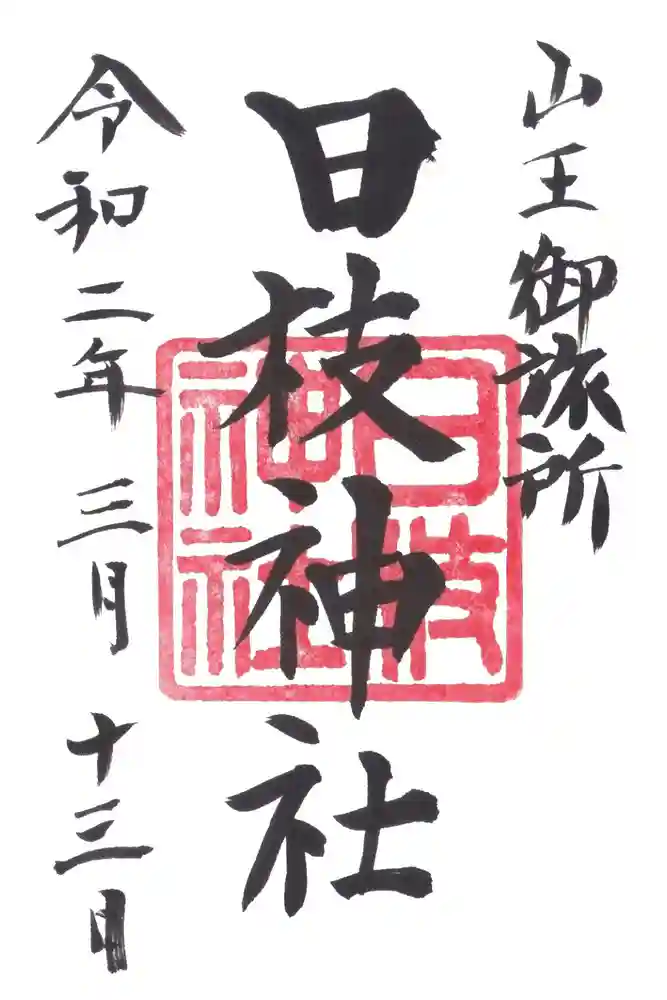 山王御旅所
日枝神社
日枝
神社
令和二年 三月 十三日